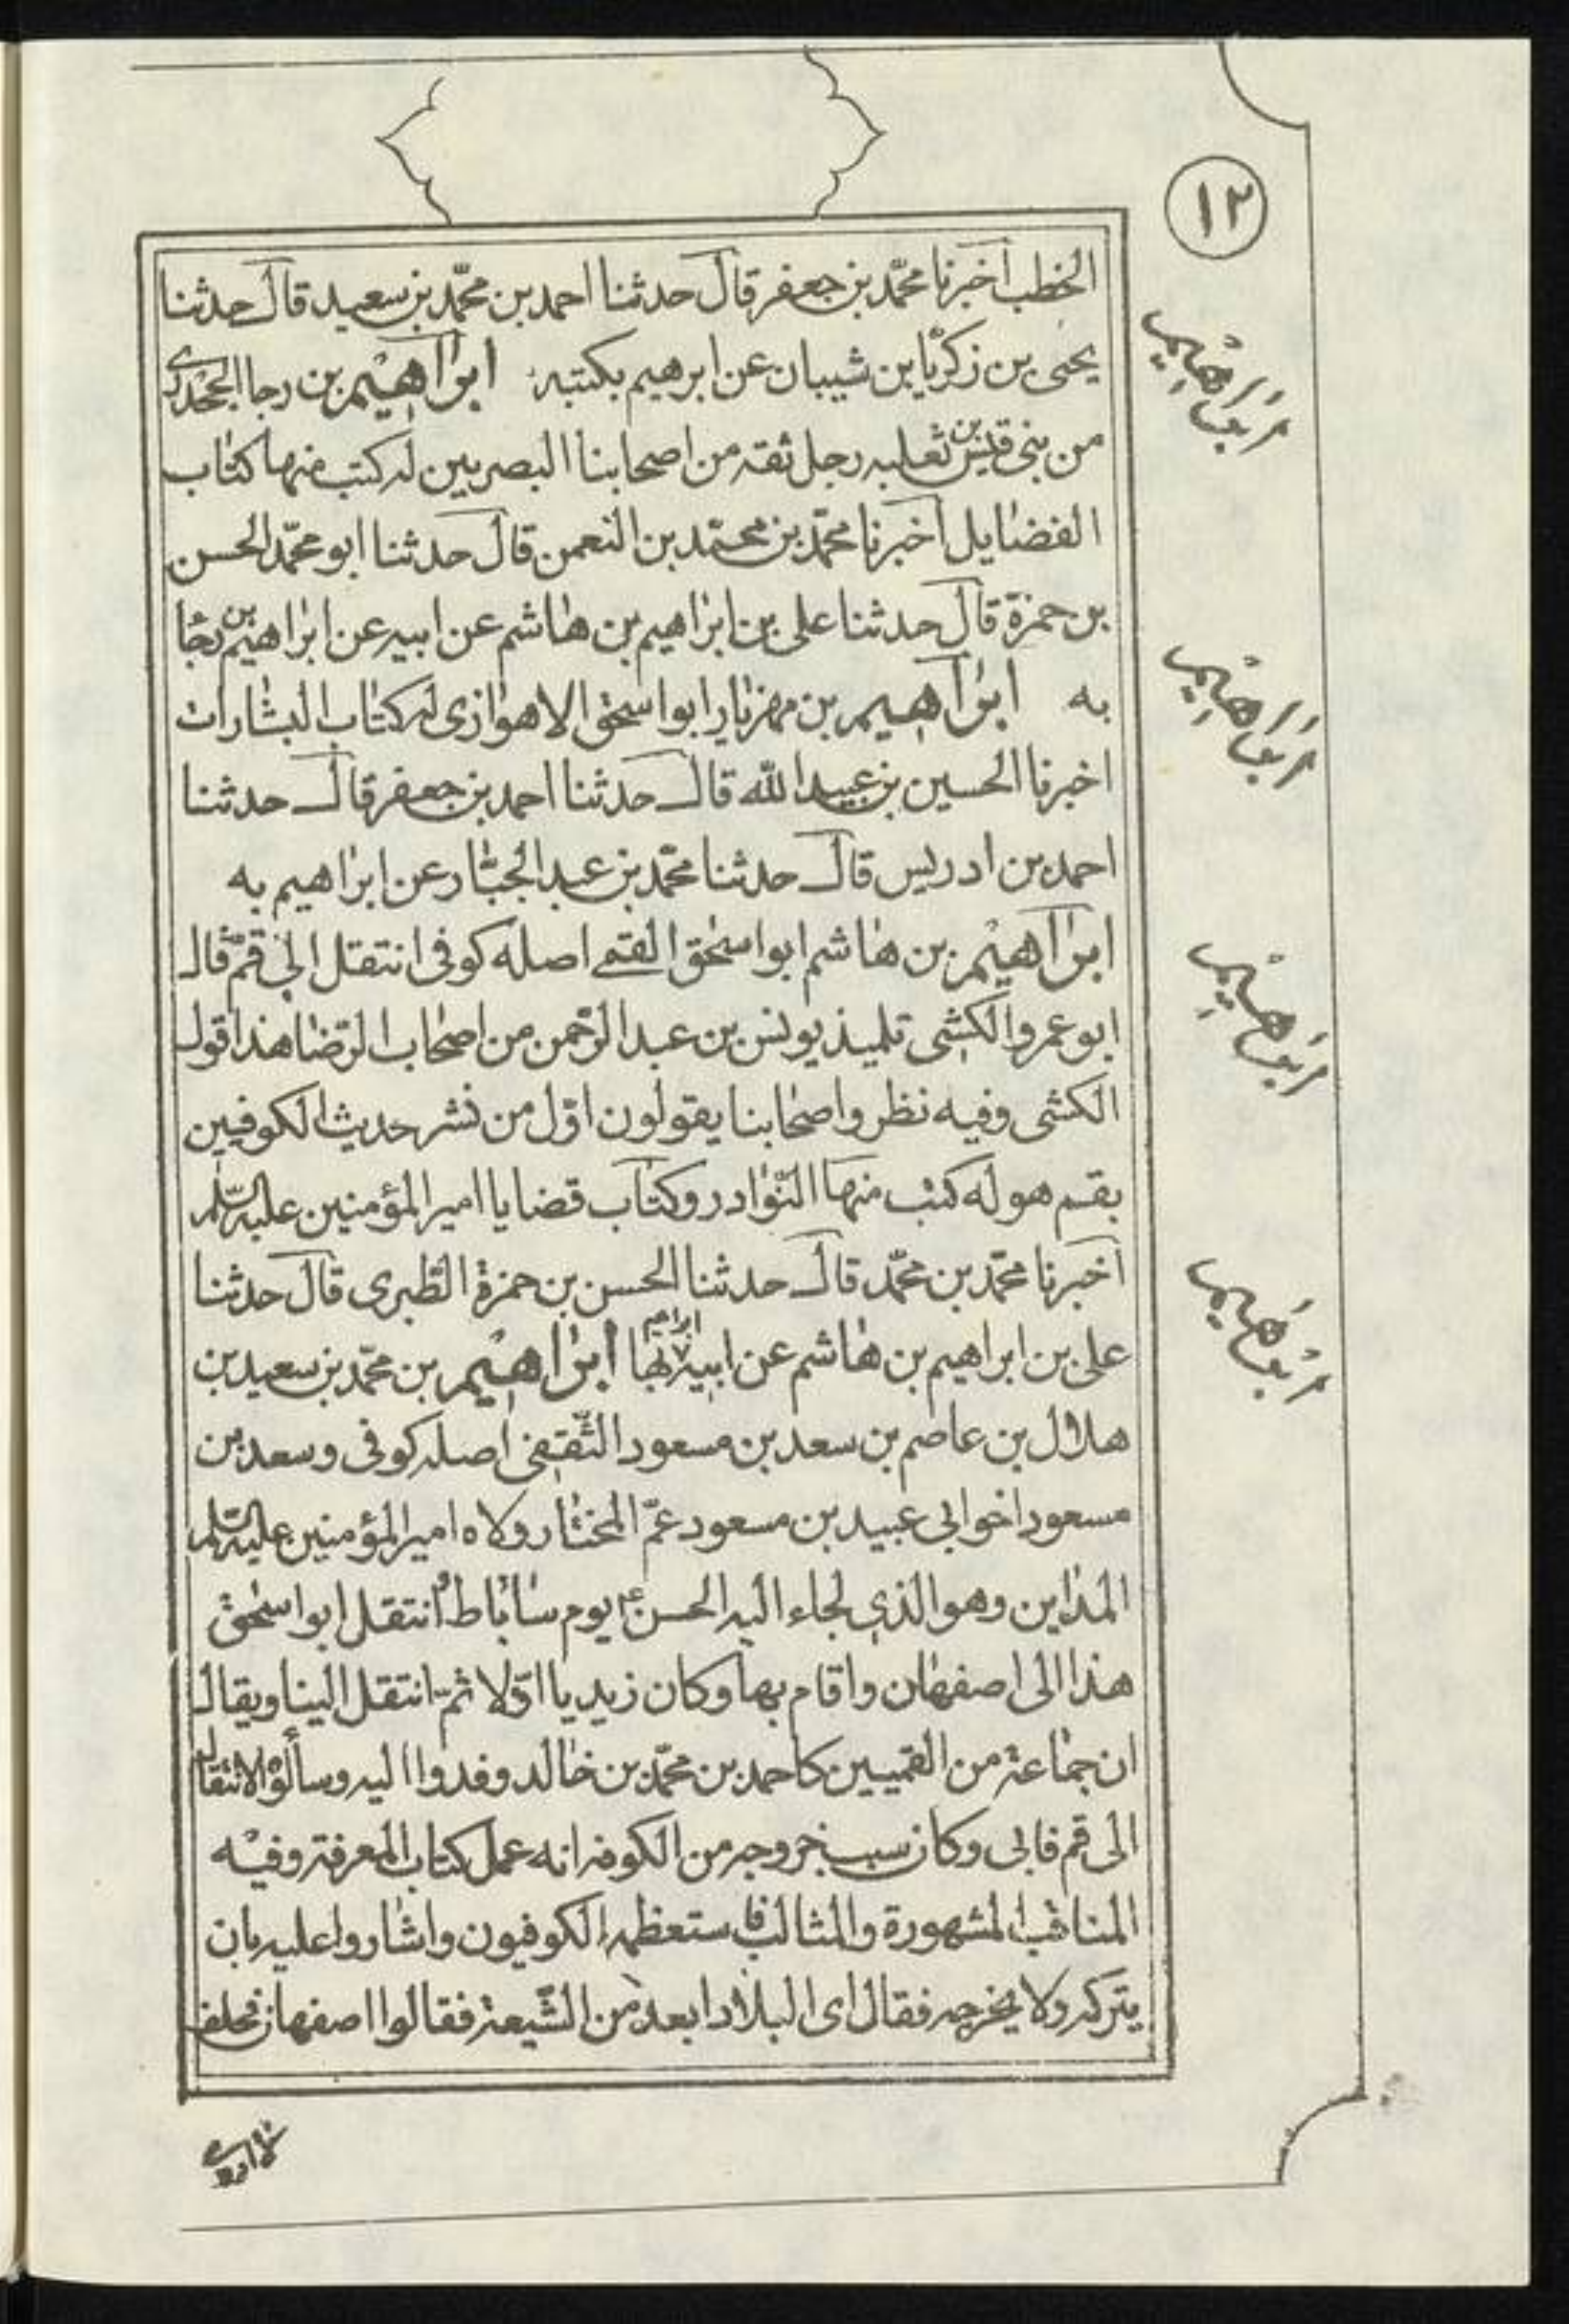 ١٢
الخطب أخبرنا محمّد بن جعفر قال حدثنا احمد بن محمّد بن سعيد قال حدثنا
يحيى بن زكريّا بن شيبان عن ابرهيم بكتبه ابرٰاهيم بن رجا الجحدرى
من بنى قيس بن ثعلبه رجل ثقه من اصحابنا البصريين له كتب منها كتٰاب
الفضٰايل أخبرنا محمّد بن محمّد بن النعمن قال حدثنا ابو محمّد الحسن
بن حمزة قال حدثنا على بن ابرٰاهيم بن هٰاشم عن ابيه عن ابرٰاهيم بن رجٰا
به ابرٰاهيم بن مهزيٰار ابو اسحق الاهوٰازى له كتٰاب البشٰارات
اخبرنا الحسين بن عبيد الله قال حدثنا احمد بن جعفر قال حدثنا
احمد بن ادريس قال حدثنا محمّد بن عبد الجبّٰار عن ابرٰاهيم به
ابرٰاهيم بن هٰاشم ابو اسحٰق القمى اصله كوفى انتقل الى قمّ قال
ابو عمرو الكشى تلميذ يونس بن عبد الرّحمن من اصحٰاب الرّضٰا هذا قول
الكشى وفيه نظر واصحٰابنا يقولون اوّل من نشر حديث الكوفيين
بقم هو له كتب منهٰا النّوٰادر وكتٰاب قضايا امير المؤمنين عليه السّلم
أخبرنا محمّد بن محمّد قال حدثنا الحسن بن حمزة الطّبرى قال حدثنا
على بن ابراهيم بن هٰاشم عن ابيه ابراهيم بهٰا ابرٰاهيم بن محمّد بن سعيد بن
هلال بن عاصم بن سعد بن مسعود الثّقفى اصله كوفى وسعد بن
مسعود اخو ابى عبيد بن مسعود عمّ المختٰار ولاه امير المؤمنين عليه السّلم
المدٰاين وهو الذى لجاء اليه الحسن ع يوم سٰابٰاط وانتقل ابو اسحٰق
هذا الى اصفهٰان واقام بها وكان زيديا اوّلا ثمّ انتقل الينا ويقال
ان جمٰاعة من القميين كاحمد بن محمّد بن خٰالد وفدوا اليه وسألوه الانتقال
الى قم فابى وكان سبب خروجه من الكوفه انه عمل كتاب المعرفة وفيه
المناقب المشهورة والمثالب فاستعظمه الكوفيون واشٰاروا عليه بان
يتركه ولا يخرجه فقال اى البلاد ابعد من الشّيعة فقالوا اصفهان فحلف
ابراهيم
ابراهيم
ابراهيم
ابراهيم